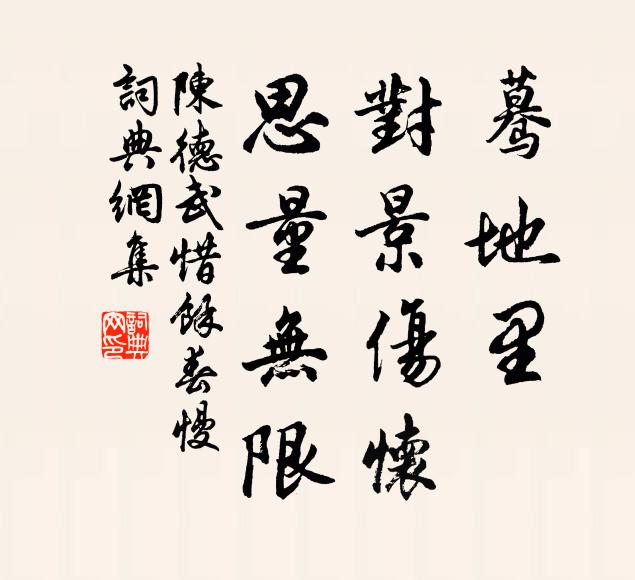 驀地里
對景傷懷
思量無限
陳德武惜餘春慢
詞典網集
詞典
網印